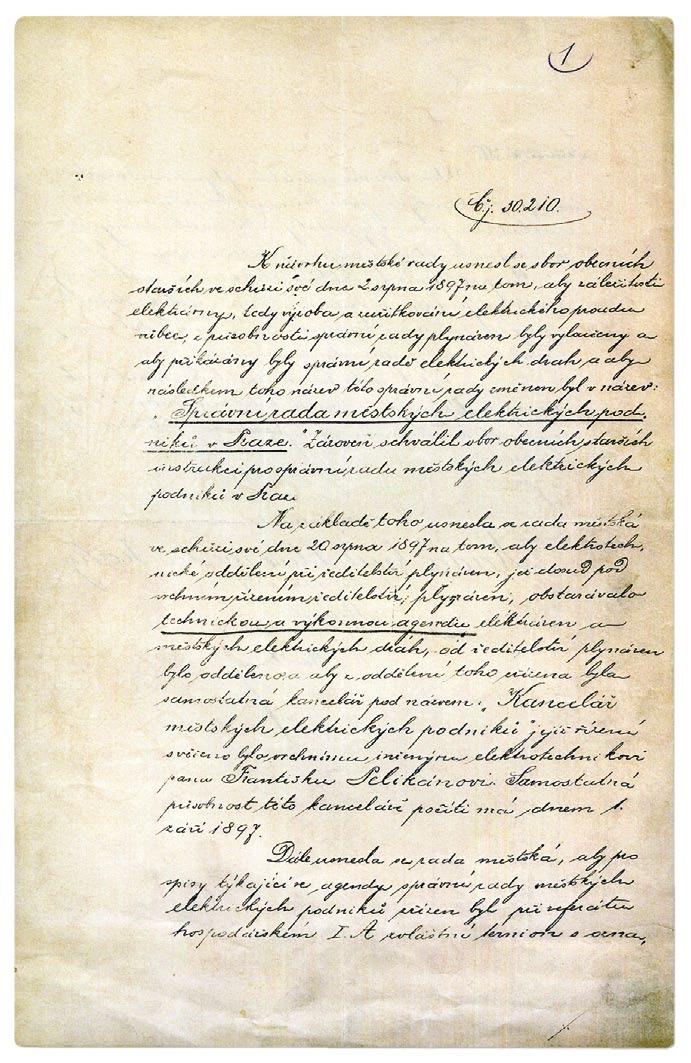 1
Čj. 30.210.
K návrhu městské rady usnesl se sbor obecních
starších ve schůzi své dne 2 srpna 1897 na tom, aby záležitosti
elektrárny, tedy výroba a zužitkování elektrického proudu
vůbec, z působnosti správní rady plynáren byly vyloučeny a
aby přikázány byly správní radě elektrických drah a aby
následkem toho název této správní rady změněn byl v název:
„Správní rada městských elektrických pod-
niků v Praze." Zároveň schválil sbor obecních starších
instrukci pro správní radu městských elektrických
podniků v Praze.
Na základě toho usnesla se rada městská
ve schůzi své dne 20 srpna 1897 na tom, aby elektrotech-
nické oddělení při ředitelství plynáren, jež dosud pod
vrchním řízením ředitelství plynáren, obstarávalo
technickou a výkonnou agendu elektráren a
městských elektrických drah, od ředitelství plynáren
bylo odděleno, a aby z oddělení toho zřízena byla
samostatná kancelář pod názvem: „Kancelář
městských elektrických podniků" jejíž řízení
svěřeno bylo vrchnímu inženýru elektrotechnikovi
panu Františku Pelikánovi. Samostatná
působnost této kanceláře počíti má dnem 1.
září 1897.
Dále usnesla se rada městská, aby pro
spisy týkající se agendy správní rady městských
elektrických podniků zřízen byl při referátu
hospodářském I. A zvláštní ternion s ozna-